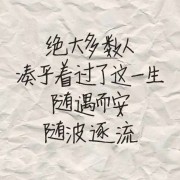 绝大多数人
凑乎着过了这一生
随遇而安
随波逐流